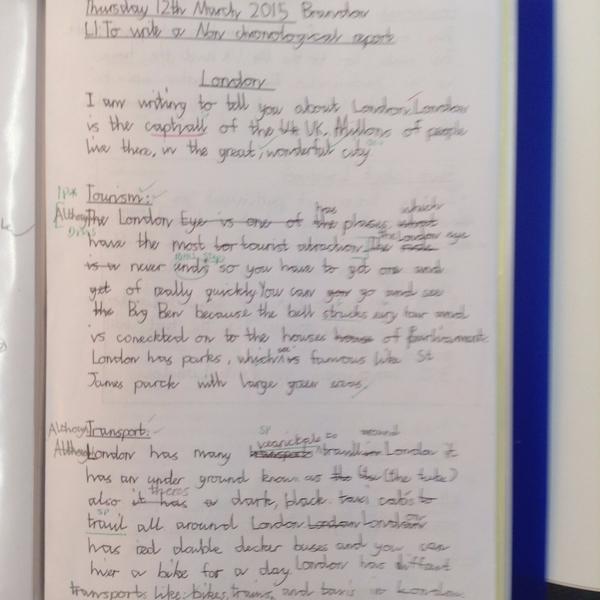 Thursday 12th March 2015 Brandon
LI: To write a Non chronological report
London
I am writing to tell you about London. London
is the capitall of the UK UK. Millions of people
live there, in the great, wonderful city
Tourism:
has which
Although The London Eye is one of the plases
have the most tourist atraction. The
the London eye
is a never ends so you have to get one and
get of really quickly You can go and see
the Big Ben because the bell strucks evry hour and
is coneckted on to the houses house of Parliament
London has parks, which is famous like St
James parck with large
sp
Although Transport:
Although London has many transports London It
around
has an under ground known as the (the tube)
theres
also it has a dark, black taxi cabs to
sp
travil all around London London London
has red double decker buses and you can
hier a bike for a day. London has diffrant
transports like: bikes, trains, and taxis in London.